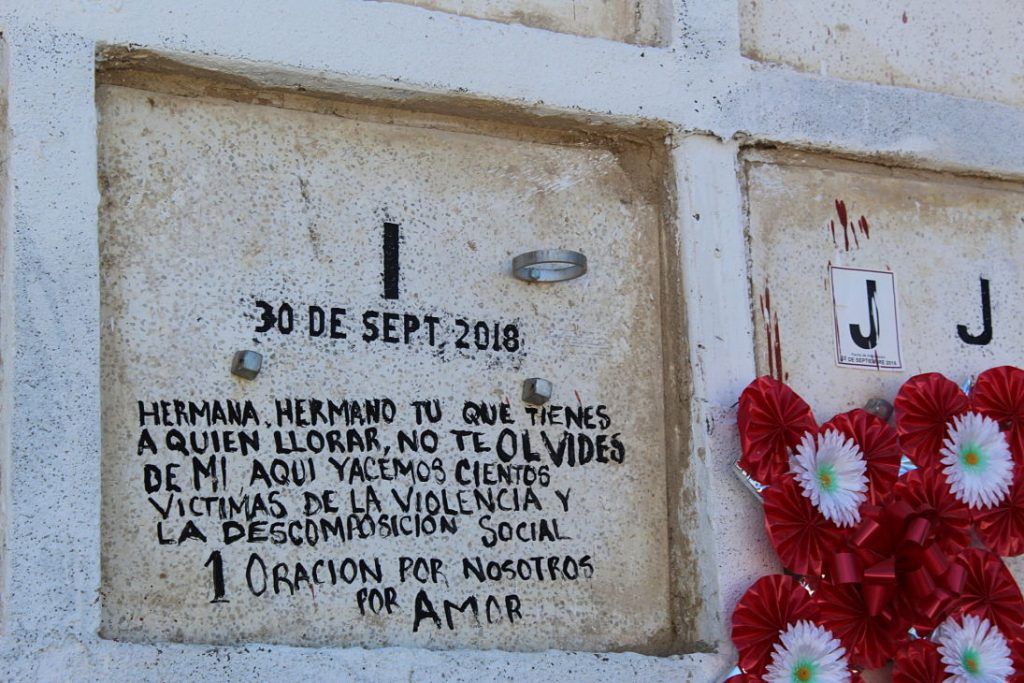 I
30 DE SEPT, 2018
HERMANA, HERMANO TU QUE TIENES
A QUIEN LLORAR, NO TE OLVIDES
DE MI AQUI YACEMOS CIENTOS
VICTIMAS DE LA VIOLENCIA Y
LA DESCOMPOSICIÓN SOCIAL
1 ORACION POR NOSOTROS
POR AMOR
J
J